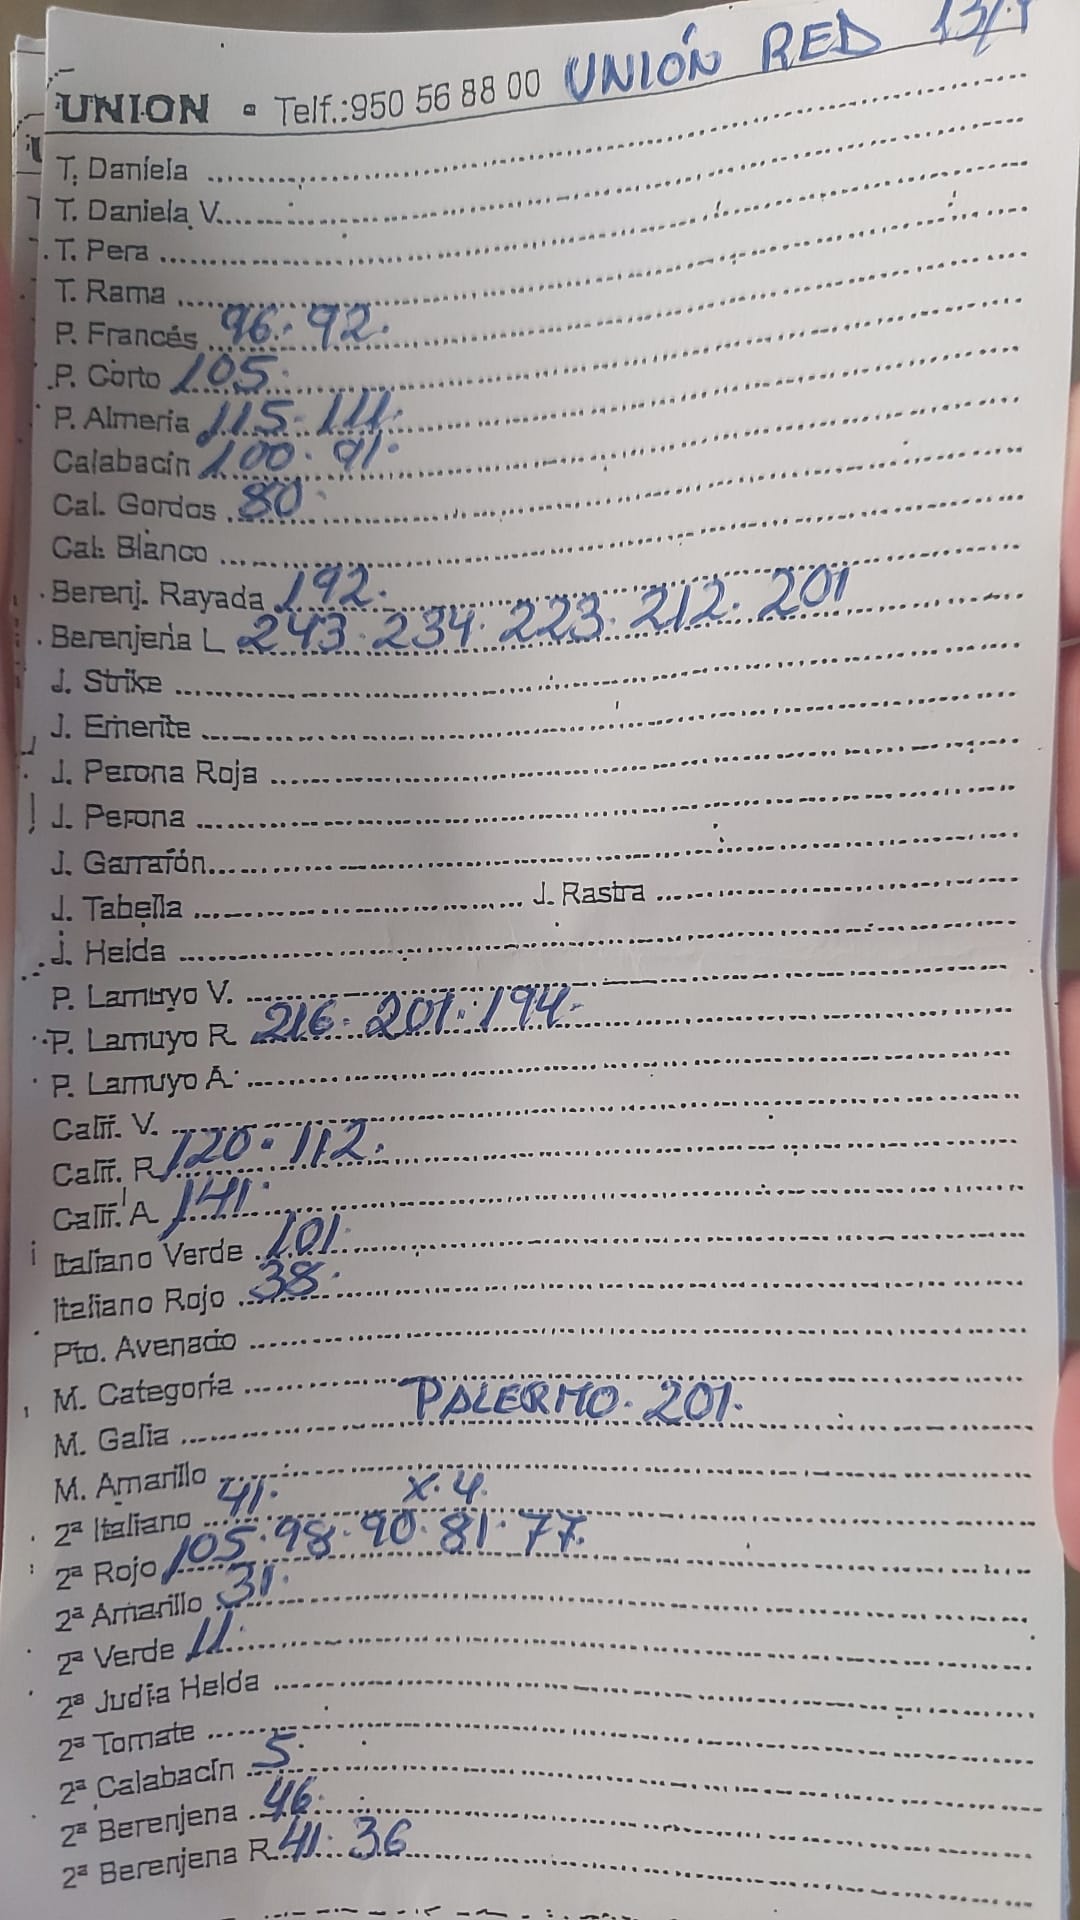 UNION - Telf.:950 56 88 00 UNIÓN RED
T. Daniela
T. Daniela V.
T. Pera
T. Rama
P. Francés 96. 92.
P. Corto 105.
P. Almeria 115. 111.
Calabacín 100. 91.
Cal. Gordos 80.
Cal. Blanco
Berenj. Rayada 192.
Berenjena L 243. 234. 223. 212. 201
J. Strike
J. Emerite
J. Perona Roja
J. Perona
J. Garrafón
J. Tabella J. Rastra
J. Helda
P. Lamuyo V.
P. Lamuyo R 216. 201. 194.
P. Lamuyo A
Calif. V.
Calif. R 120. 112.
Calif. A 141.
Italiano Verde 101.
Italiano Rojo 38.
Pto. Avenado
M. Categoría
M. Galia PALERMO. 201.
M. Amarillo
2ª Italiano 41. X. 4.
2ª Rojo 105. 98. 90. 81. 77.
2ª Amarillo 31.
2ª Verde 11.
2ª Judía Helda
2ª Tomate
2ª Calabacín 5.
2ª Berenjena 46.
2ª Berenjena R 41. 36